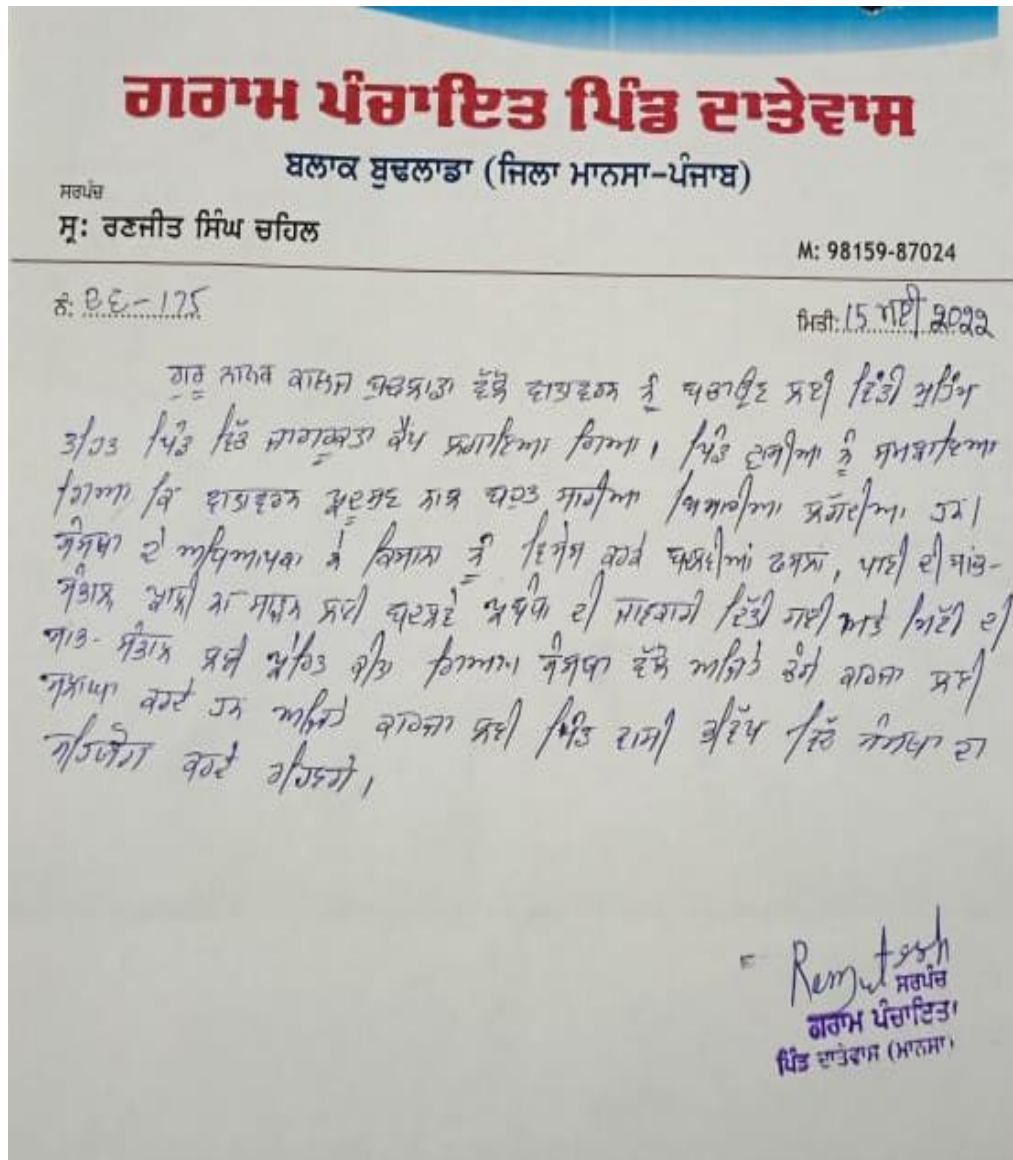 ਗਰਾਮ ਪੰਚਾਇਤ ਪਿੰਡ ਦਾਤੇਵਾਸ
ਬਲਾਕ ਬੁਢਲਾਡਾ (ਜਿਲਾ ਮਾਨਸਾ-ਪੰਜਾਬ)
ਸਰਪੰਚ
ਸ੍ਰ: ਰਣਜੀਤ ਸਿੰਘ ਚਹਿਲ
M: 98159-87024
ਨੰ: 
ਮਿਤੀ: 15 ਮਈ 2022
ਗੁਰੂ ਨਾਨਕ ਕਾਲਜ ਬੁਢਲਾਡਾ ਵੱਲੋਂ ਵਾਤਾਵਰਨ ਨੂੰ ਬਚਾਉਣ ਲਈ ਵਿੱਤੀ ਮੁਹਿੰਮ
ਤਹਿਤ ਪਿੰਡ ਵਿੱਚ ਜਾਗਰੂਕਤਾ ਕੈਂਪ ਲਗਾਇਆ ਗਿਆ। ਪਿੰਡ ਵਾਸੀਆ ਨੂੰ ਸਮਝਾਇਆ
ਗਿਆ ਕਿ ਵਾਤਾਵਰਨ ਪ੍ਰਦੂਸ਼ਣ ਨਾਲ ਬਹੁਤ ਸਾਰੀਆ ਬਿਮਾਰੀਆ ਲੱਗਦੀਆ ਹਨ।
ਸੰਸਥਾ ਦੇ ਅਧਿਆਪਕਾ ਨੇ ਕਿਸਾਨਾ ਨੂੰ ਵਿਸੇਸ ਕਰਕੇ ਬਦਲਵੀਆਂ ਫਸਲਾਂ, ਪਾਣੀ ਦੀ ਸਾਂਭ-
ਸੰਭਾਲ ਪਰਾਲੀ ਨਾ ਸਾੜਨ ਲਈ ਬਦਲਵੇਂ ਪ੍ਰਬੰਧਾ ਦੀ ਜਾਣਕਾਰੀ ਦਿੱਤੀ ਗਈ ਅਤੇ ਮਿੱਟੀ ਦੀ
ਸਾਂਭ-ਸੰਭਾਲ ਲਈ ਪ੍ਰੇਰਿਤ ਕੀਤਾ ਗਿਆ। ਸੰਸਥਾ ਵੱਲੋਂ ਅਜਿਹੇ ਚੰਗੇ ਕਾਰਜਾ ਲਈ
ਸਲਾਘਾ ਕਰਦੇ ਹਨ ਅਜਿਹੇ ਕਾਰਜਾ ਲਈ ਪਿੰਡ ਵਾਸੀ ਭਵਿੱਖ ਵਿੱਚ ਸੰਸਥਾ ਦਾ
ਸਹਿਯੋਗ ਕਰਦੇ ਰਹਿਣਗੇ।
ਸਰਪੰਚ
ਗਰਾਮ ਪੰਚਾਇਤ
ਪਿੰਡ ਦਾਤੇਵਾਸ (ਮਾਨਸਾ)